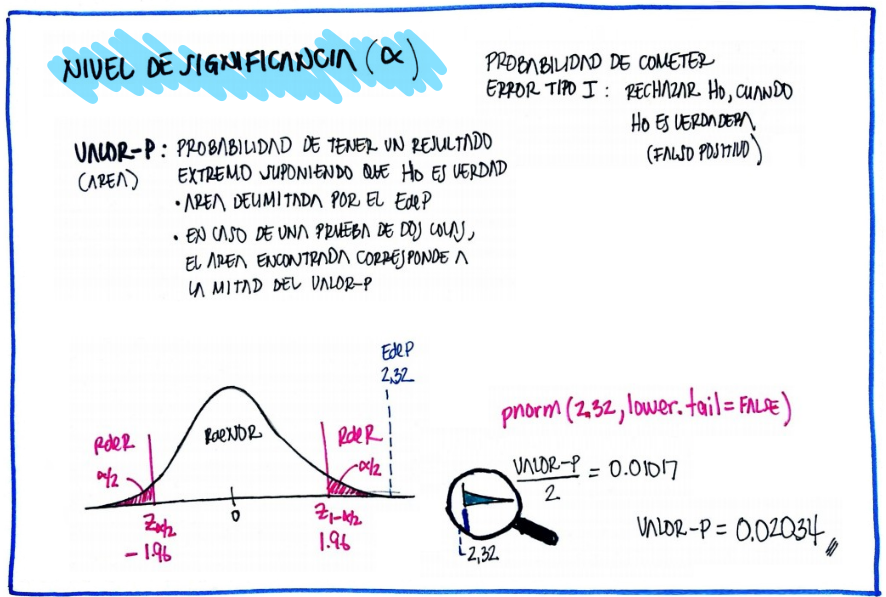 NIVEL DE SIGNIFICANCIA (α)
PROBABILIDAD DE COMETER
ERROR TIPO I : RECHAZAR Ho, CUANDO
Ho ES VERDADERA
(FALSO POSITIVO)
VALOR-P : PROBABILIDAD DE TENER UN RESULTADO
(AREA) EXTREMO SUPONIENDO QUE Ho ES VERDAD
• AREA DELIMITADA POR EL EdeP
• EN CASO DE UNA PRUEBA DE DOS COLAS,
EL AREA ENCONTRADA CORRESPONDE A
LA MITAD DEL VALOR-P
EdeP
2,32
RdeR
α/2
RdeNOR
RdeR
α/2
Zα/2
-1.96
0
Z1-α/2
1.96
pnorm (2,32, lower.tail = FALSE)
VALOR-P / 2 = 0.01017
2,32
VALOR-P = 0.02034